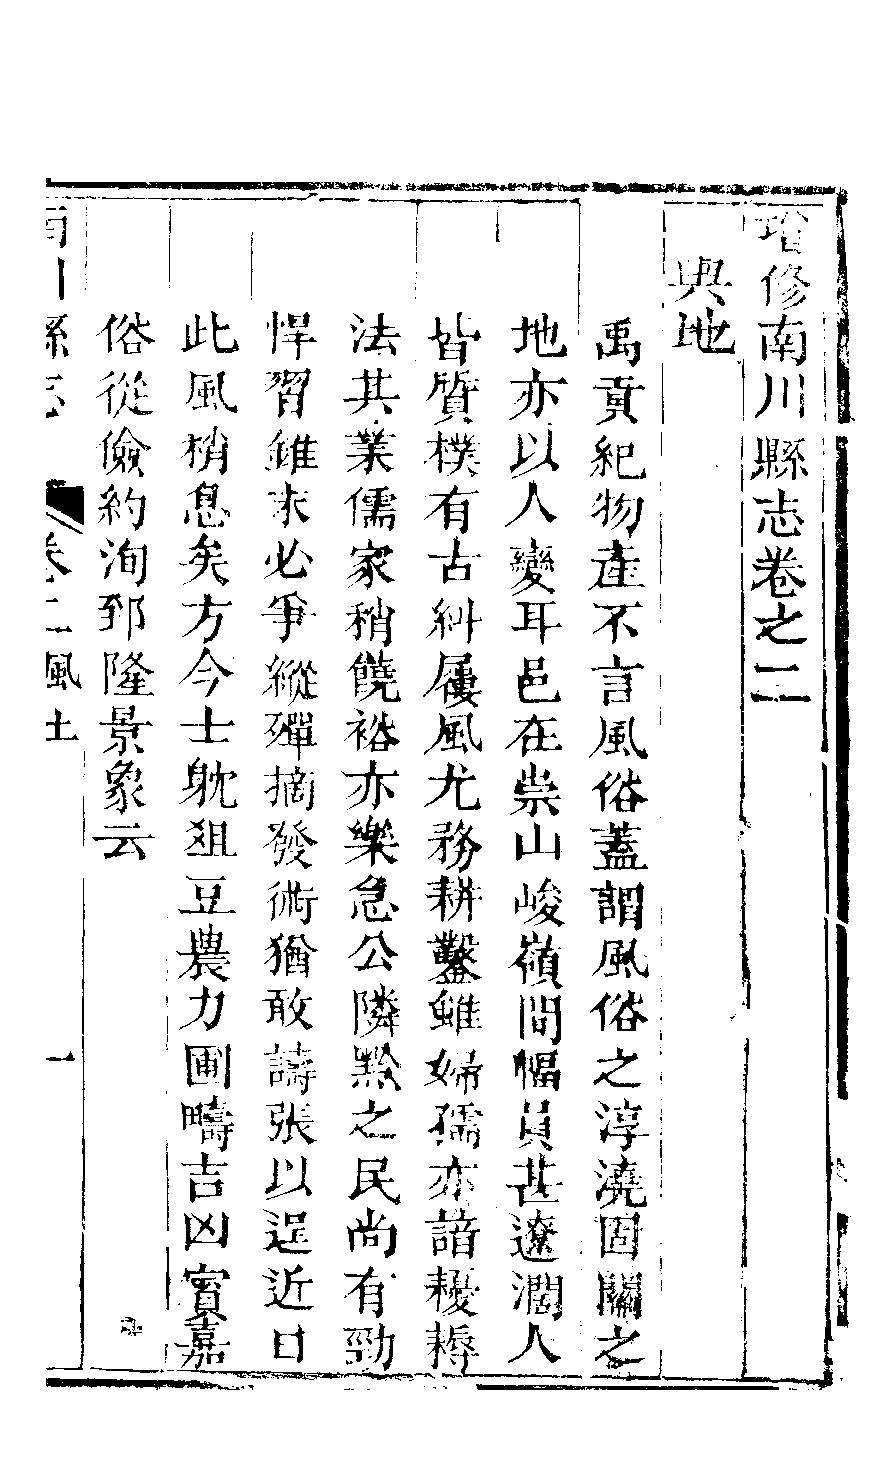 增修南川縣志卷之二
輿地
禹貢紀物產不言風俗蓋謂風俗之淳澆固關之
地亦以人變耳邑在崇山峻嶺間幅員甚遼濶人
皆質樸有古糾屨風尤務耕鑿雖婦孺亦諳耰耨
法其業儒家稍饒裕亦樂急公隣黔之民尚有勁
悍習錐末必爭縱殫摘發術猶敢譸張以逞近日
此風稍息矣方今士躭俎豆農力圃疇吉凶賓嘉
俗從儉約洵郅隆景象云
南川縣志
卷二風土
一